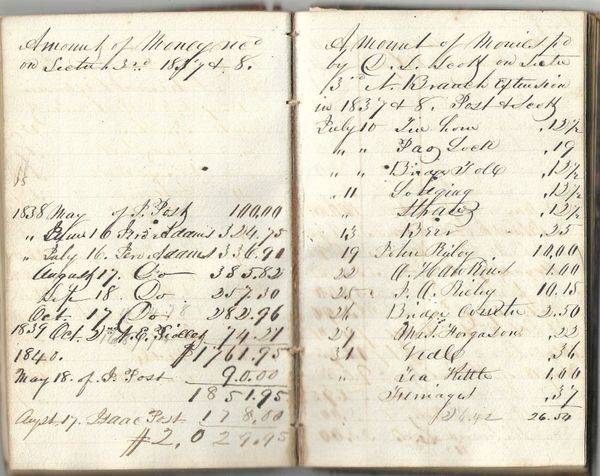 Amount of Money recd
on Section 3rd 1837 & 8.
1838 May of I. Post 100,00
" June 16 Fro Adams 324,75
" July 16. Fro Adams 336.91
August 17. Do 385.82
Sep 18. Do 257.30
Oct 17 Do 282.96
1839 Oct. 2 74.21
1840. $1761.95
May 18. of I. Post 90.00
1851.95
Augst 17. Isaac Post 178,00
$2,029.95
Amount of Monies pd
by C. L. Scott on Sectn
3rd N. Branch Extension
in 1837 & 8. Post & Scott
July 10 Tin horn ,12½
" " Pad Lock ,19
" " Bridge Tole ,12½
" 11 Lodging ,12½
" ,12½
" 13 Beer ,25
19 John Rigby 10,00
22 A. Hawkins 1.00
25 J. A. Rigby 10.15
26 Bridge 2.50
27 Mrs. Forgason ,22
31 ,36
" Tea Kettle 1.00
,37
26.42 26.54